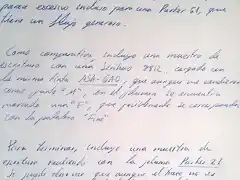 para escrito incluso para una Parker 51, que
tiene un flujo generoso.
Como comparativa incluyo una muestra de
escritura con una Senator, cargada con
la misma tinta, que aunque me vendieron
como punto "M", en el plumín se encuentra
marcada una "F", que posiblemente se corresponda
con la palabra "Fine"
Para terminar, incluyo una muestra de
escritura realizada con la pluma Parker 21
que aunque el trazo no es